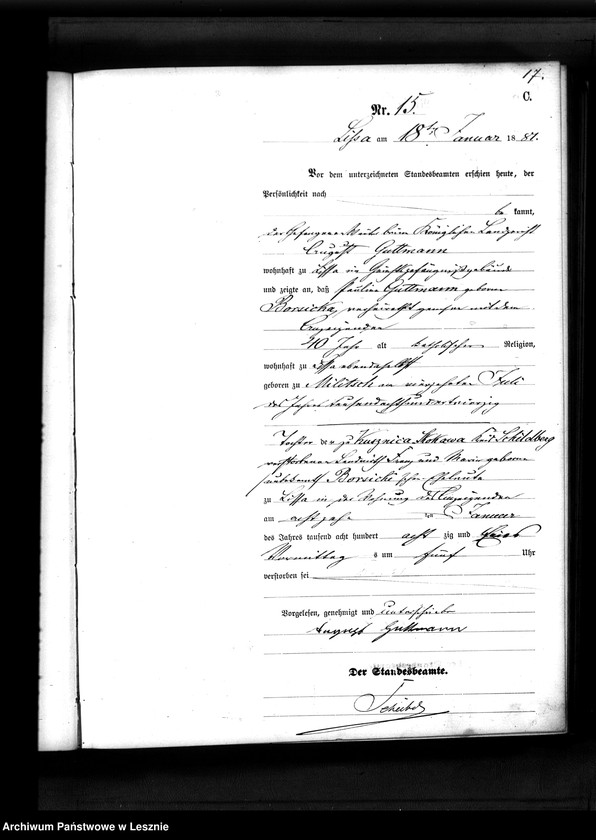 17.
C.
Nr. 15.
Lissa am 18ten Januar 1881.
Vor dem unterzeichneten Standesbeamten erschien heute, der
Persönlichkeit nach
be kannt,
der Gefangenen Wärter beim Königlichen Landgericht
August Guttmann
wohnhaft zu Lissa im Gerichtsgefängnißgebäude
und zeigte an, daß Pauline Guttmann geborene
Borsicka, verheirathet gewesen mit dem
Anzeigenden
40 Jahr alt katholischer Religion,
wohnhaft zu Lissa ebendaselbst
geboren zu Militsch am Juli
des Jahres tausendachthundertvierzig
Tochter der zu Kuznica Skakawa Kreis Schildberg
verstorbenen Franz und Marie geborene
Borsicki schen Eheleute
zu Lissa in der Wohnung des Anzeigenden
am achtzehn ten Januar
des Jahres tausend acht hundert acht zig und eins
Vormittag s um fünf Uhr
verstorben sei
Vorgelesen, genehmigt und unterschrieben
August Guttmann
Der Standesbeamte.
Archiwum Państwowe w Lesznie